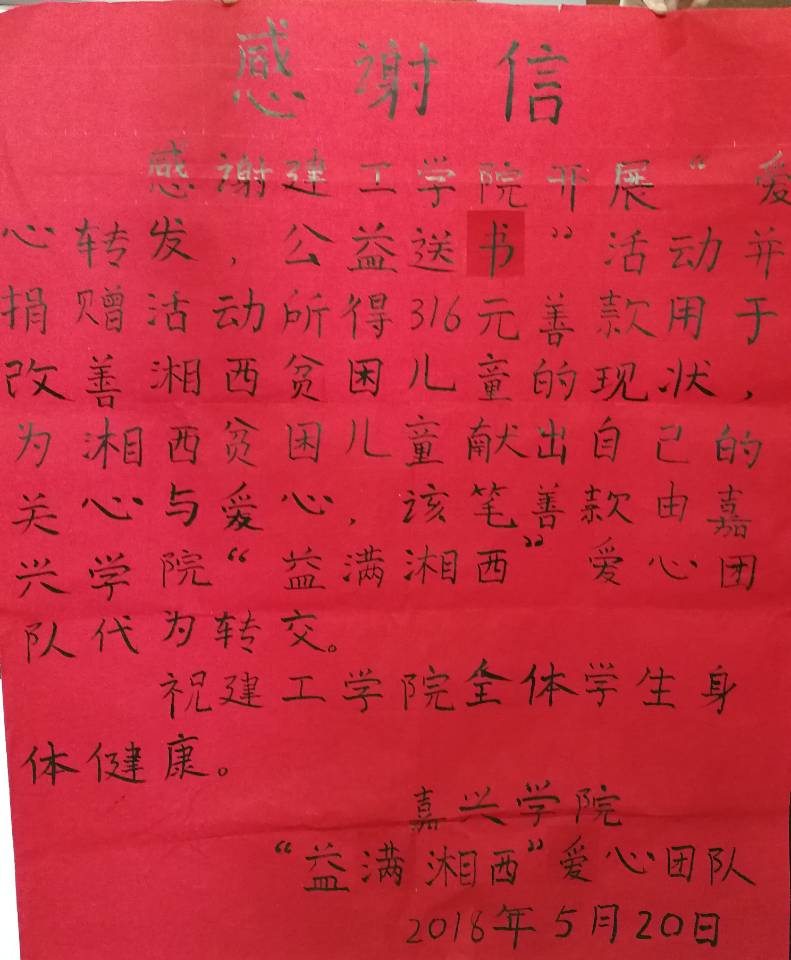 感谢信
感谢建工学院开展“爱
心转发，公益送书”活动并
捐赠活动所得316元善款用于
改善湘西贫困儿童的现状，
为湘西贫困儿童献出自己的
关心与爱心，该笔善款由嘉
兴学院“益满湘西”爱心团
队代为转交。
祝建工学院全体学生身
体健康。
嘉兴学院
“益满湘西”爱心团队
2018年5月20日